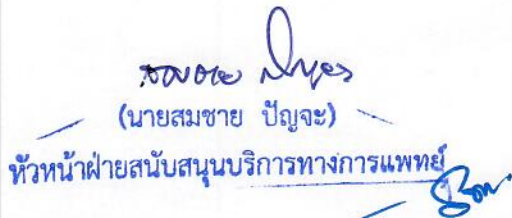 (นายสมชาย ปัญจะ)
หัวหน้าฝ่ายสนับสนุนบริการทางการแพทย์